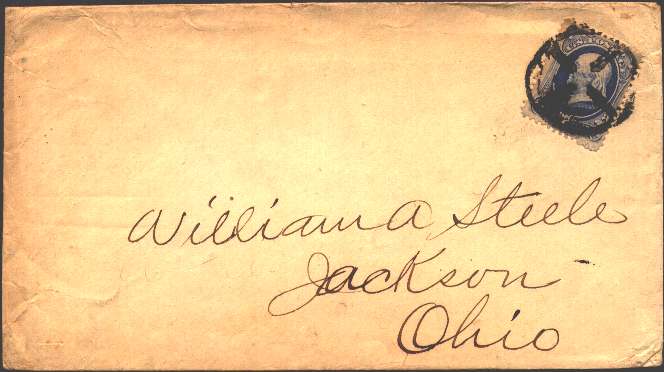 William A Steele
Jackson
Ohio